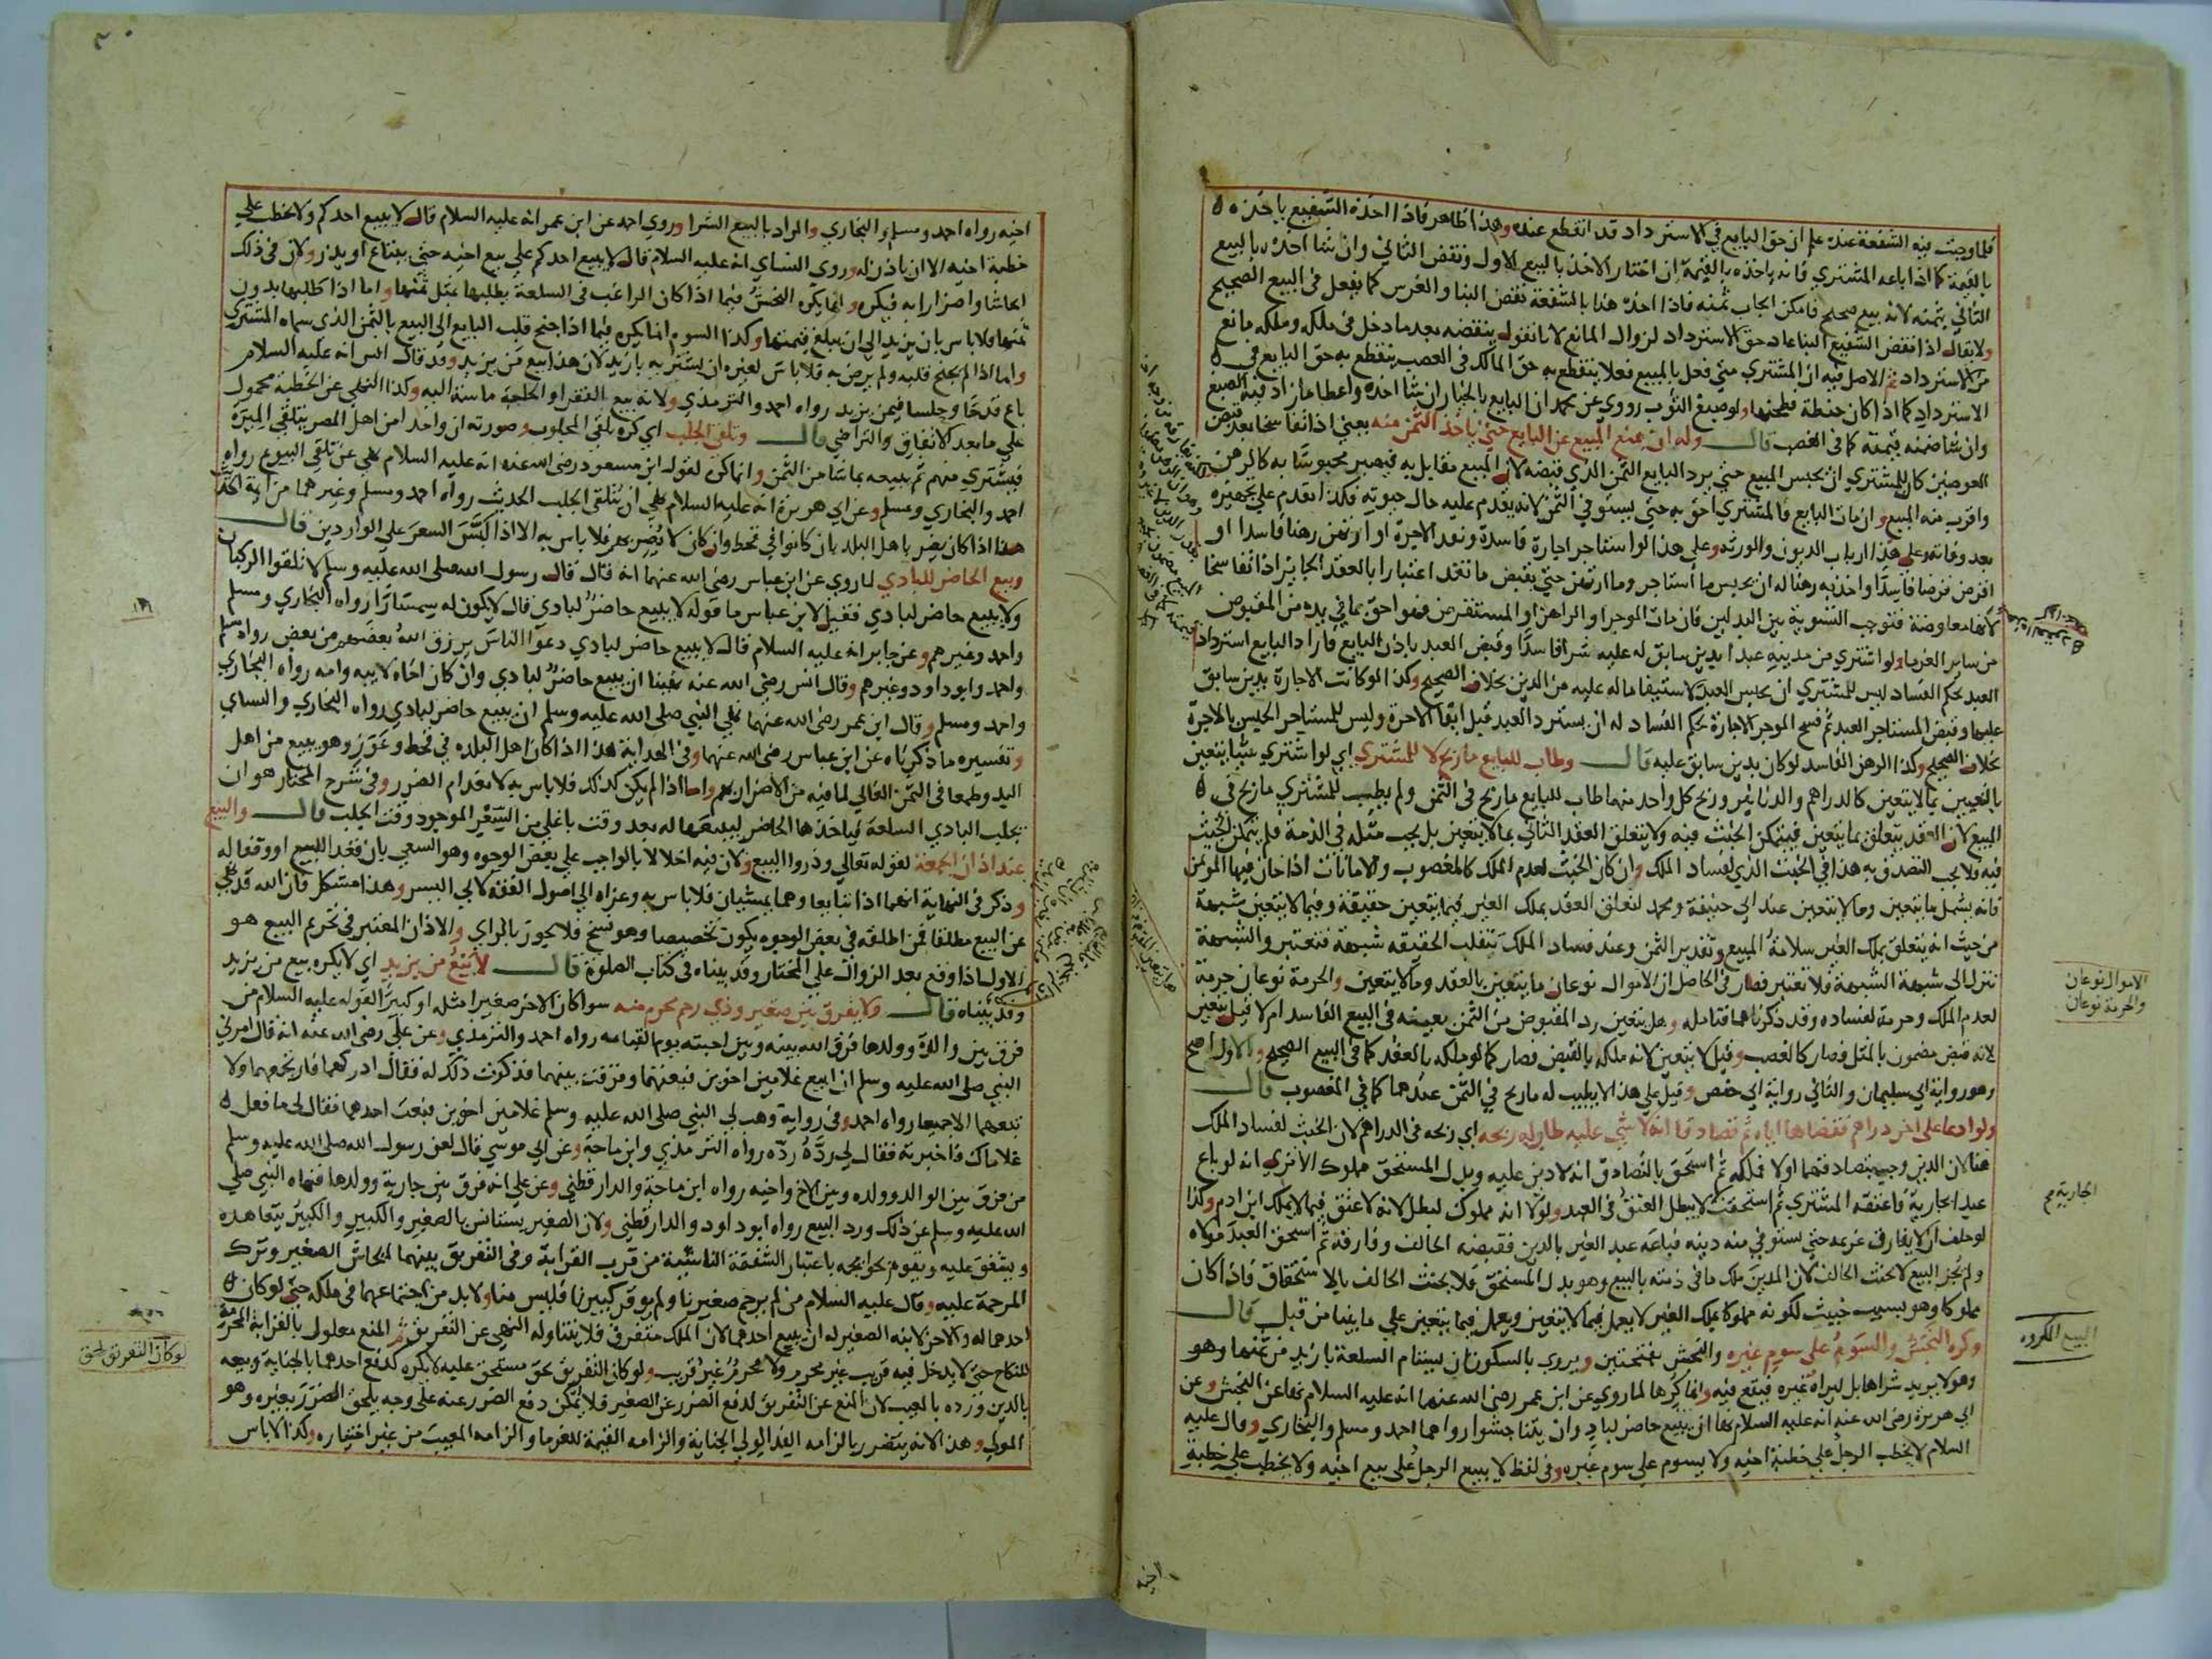 فلما وجبت فيه الشفعة عنده علم ان حق البايع في الاسترداد قد انقطع عنده وهذا ظاهر فاذا اخذه الشفيع ياخذه
بالقيمة كما اذا باعه المشتري فانه ياخذه بالقيمة ان اختار الاخذ بالبيع الاول ونقض الثاني وان شا اخذه بالبيع
الثاني بثمنه لانه بيع صحيح فامكن ايجاب ثمنه فاذا اخذه هذا بالشفعة نقض البنا والغرس كما يفعل في البيع الصحيح
ولا يقال اذا نقض الشفيع البنا عاد حق الاسترداد لزوال المانع لانا نقول ينقضه بعد ما دخل في ملكه وملكه مانع
من الاسترداد ثم الاصل فيه ان المشتري متي فعل بالمبيع فعلا ينقطع به حق المالك في الغصب ينقطع به حق البايع في
الاسترداد كما اذا كان حنطة فطحنها ولو صبغ الثوب روي عن محمد ان البايع بالخيار ان شا اخذه واعطا ما زاد فيه الصبغ
وان شا ضمنه قيمته كما في الغصب قال وله ان يمنع المبيع عن البايع حتي ياخذ الثمن منه يعني اذا تفاسخا بعد قبض
العوضين كان للمشتري ان يحبس المبيع حتي يرد البايع الثمن الذي قبضه لان المبيع مقابل به فيصير محبوسا به كالرهن
واقرب منه المبيع وان مات البايع فالمشتري احق به حتي يستوفي الثمن لانه يقدم عليه حال حيوته فكذا يقدم علي تجهيزه
بعد وفاته وعلى هذا ارباب الديون والورثة وعلي هذا لو استاجر اجارة فاسدة ونقد الاجرة او ارتهن رهنا فاسدا او
اقرض قرضا فاسدا واخذ به رهنا له ان يحبس ما استاجر وما ارتهن حتي يقبض ما نقد اعتبارا بالعقد الجايز اذا تفاسخا
لانها معاوضة فتوجب التسوية بين البدلين فان مات الموجر او الراهن او المستقرض فهو احق بما في يده من المقبوض
من ساير الغرما ولو اشتري من مدينه عبدا بدين سابق له عليه شرا فاسدا وقبض العبد باذن البايع فاراد البايع استرداد
العبد بحكم الفساد ليس للمشتري ان يحبس العبد لاستيفا ما له عليه من الدين بخلاف الصحيح وكذا لو كانت الاجارة بدين سابق
عليها وقبض المستاجر العبد ثم فسخ الموجر الاجارة بحكم الفساد له ان يسترد العبد قبل ايفا الاجرة وليس للمستاجر الحبس بالاجرة
بخلاف الصحيح وكذا الرهن الفاسد لو كان بدين سابق عليه قال وطاب للبايع ما ربح لا للمشتري اي لو اشتري شيا يتعين
بالتعيين بما لا يتعين كالدراهم والدنانير وربح كل واحد منهما طاب للبايع ما ربح في الثمن ولم يطب للمشتري ما ربح في
المبيع لان العقد يتعلق بما يتعين فيتمكن الخبث فيه ولا يتعلق العقد الثاني بما لا يتعين بل يجب مثله في الذمة فلم يتمكن الخبث
فيه فلا يجب التصدق به هذا في الخبث الذي لفساد الملك وان كان الخبث لعدم الملك كالمغصوب والامانات اذا خان فيها المؤتمن
فانه يشمل ما يتعين وما لا يتعين عند ابي حنيفة ومحمد لتعلق العقد بملك الغير فيما يتعين حقيقة وفيما لا يتعين شبهة
من حيث انه يتعلق بملك الغير سلامة المبيع وتقدير الثمن وعند فساد الملك تنقلب الحقيقة شبهة فتعتبر والشبهة
تنزل الى شبهة الشبهة فلا تعتبر فصار في الحاصل ان الاموال نوعان ما يتعين بالعقد وما لا يتعين والحرمة نوعان حرمة
لعدم الملك وحرمة لفساده وقد ذكرناهما فتامله وهل يتعين رد المقبوض من الثمن بعينه في البيع الفاسد ام لا قيل يتعين
لانه قبض مضمون بالمثل فصار كالغصب وقيل لا يتعين لانه ملكه بالقبض فصار كما لو ملكه بالعقد كما في البيع الصحيح والاول اصح
وهو رواية ابي سليمان والثاني رواية ابي حفص وقيل علي هذا لا يطيب له ما ربح في الثمن عندهما كما في المغصوب قال
ولو ادعا على اخر دراهم فقضاها اياه ثم تصادقا انه لا شي عليه طاب له ربحه اي ربحه في الدراهم لان الخبث لفساد الملك
هنا لان الدين وجب بتصادقهما اولا فملكه ثم استحق بالتصادق انه لا دين عليه وبدل المستحق مملوك الا تري انه لو باع
عبدا بجارية فاعتقه المشتري ثم استحقت لا يبطل العتق في العبد ولولا انه مملوك لبطل لانه لا عتق فيما لا يملك ابن ادم وكذا
لو حلف ان لا يفارق غريمه حتي يستوفي منه دينه فباعه عبد الغير بالدين فقبضه الحالف وفارقه ثم استحق العبد مولاه
ولم يجز البيع لا يحنث الحالف لان المدين ملك ما في ذمته بالبيع وهو بدل المستحق فلا يحنث الحالف بالاستحقاق فاذا كان
مملوكا وهو بسبب خبيث لكونه مملوكا بملك الغير لا يعمل فيما لا يتعين ويعمل فيما يتعين علي ما بينا من قبل قال
وكره النجش والسوم علي سوم غيره والنجش بفتحتين ويروي بالسكون ان يستام السلعة بازيد من ثمنها وهو
وهو لا يريد شراها بل ليراه غيره فيقع فيه وانما كرها لما روي عن ابن عمر رضي الله عنهما انه عليه السلام نها عن النجش وعن
ابي هريرة رضي الله عنه انه عليه السلام نها ان يبيع حاضر لباد وان يتناجشوا رواهما احمد ومسلم والبخاري وقال عليه
السلام لا يخطب الرجل علي خطبة اخيه ولا يسوم علي سوم غيره وفي لفظ لا يبيع الرجل علي بيع اخيه ولا يخطب علي خطبة
الاموال نوعان
والحرمة نوعان
البيع المكروه
اخيه
اخيه رواه احمد ومسلم والبخاري والمراد بالبيع الشرا وروي احمد عن ابن عمر انه عليه السلام قال لا يبيع احدكم ولا يخطب علي
خطبة اخيه الا ان ياذن له وروي النساي انه عليه السلام قال لا يبيع احدكم علي بيع اخيه حتي يبتاع او يذر ولان في ذلك
ايحاشا واضرارا به فيكره وانما يكره النجش فيما اذا كان الراغب في السلعة يطلبها بمثل ثمنها واما اذا طلبها بدون
ثمنها فلا باس بان يزيد الي ان يبلغ قيمتها وكذا السوم انما يكره فيما اذا جنح قلب البايع الي البيع بالثمن الذي سماه المشتري
واما اذا لم يجنح قلبه ولم يرض به فلا باس لغيره ان يشتريه بازيد لان هذا بيع من يزيد وقد قال انس انه عليه السلام
باع قدحا وحلسا فيمن يزيد رواه احمد والترمذي ولانه بيع الفقرا والحاجة ماسة اليه وكذا النهي عن الخطبة محمول
علي ما بعد الاتفاق والتراضي قال وتلقي الجلب اي كره تلقي المجلوب وصورته ان واحدا من اهل المصر يتلقي الميرة
فيشتري منهم ثم يبيعه بما شا من الثمن وانما كره لقول ابن مسعود رضي الله عنه انه عليه السلام نهي عن تلقي البيوع رواه
احمد والبخاري ومسلم وعن ابي هريرة انه عليه السلام نهي ان يتلقى الجلب الحديث رواه احمد ومسلم وغيرهما من اية الحديث
هذا اذا كان يضر باهل البلد بان كانوا في قحط وان كان لا يضرهم فلا باس به الا اذا لبس السعر علي الواردين قال
وبيع الحاضر للبادي لما روي عن ابن عباس رضي الله عنهما انه قال قال رسول الله صلى الله عليه وسلم لا تلقوا الركبان
ولا يبيع حاضر لبادي فقيل لابن عباس ما قوله لا يبيع حاضر لبادي قال لا يكون له سمسارا رواه البخاري ومسلم
واحمد وغيرهم وعن جابر انه عليه السلام قال لا يبيع حاضر لبادي دعوا الناس يرزق الله بعضهم من بعض رواه مسلم
واحمد وابو داود وغيرهم وقال انس رضي الله عنه نهينا ان يبيع حاضر لبادي وان كان اخاه لابيه وامه رواه البخاري
واحمد ومسلم وقال ابن عمر رضي الله عنهما نهي النبي صلى الله عليه وسلم ان يبيع حاضر لبادي رواه البخاري والنساي
وتفسيره ما ذكرناه عن ابن عباس رضي الله عنهما وفي الهداية هذا اذا كان اهل البلده في قحط وعوز وهو يبيع من اهل
البدو طمعا في الثمن الغالي لما فيه من الاضرار بهم واما اذا لم يكن كذلك فلا باس به لانعدام الضرر وفي شرح المختار هو ان
يجلب البادي السلعة فياخذها الحاضر ليبيعها له بعد وقت باغلي من السعر الموجود وقت الجلب قال والبيع
عند اذان الجمعة لقوله تعالي وذروا البيع ولان فيه اخلالا بالواجب علي بعض الوجوه وهو السعي بان قعد للبيع او وقفا له
وذكر في النهاية انهما اذا تبايعا وهما يمشيان فلا باس به وعزاه الي اصول الفقه لابي اليسر وهذا مشكل فان الله قد نهي
عن البيع مطلقا فمن اطلقه في بعض الوجوه يكون تخصيصا وهو نسخ فلا يجوز بالراي والاذان المعتبر في تحريم البيع هو
الاول اذا وقع بعد الزوال علي المختار وقد بيناه في كتاب الصلوة قال لا بيع من يزيد اي لا يكره بيع من يزيد
وقد بيناه قال ولا يفرق بين صغير وذي رحم محرم منه سوا كان الاخر صغيرا مثله او كبيرا لقوله عليه السلام من
فرق بين والدة وولدها فرق الله بينه وبين احبته يوم القيامه رواه احمد والترمذي وعن علي رضي الله عنه انه قال امرني
النبي صلى الله عليه وسلم ان ابيع غلامين اخوين فبعتهما وفرقت بينهما فذكرت ذلك له فقال ادركهما فارتجعهما ولا
تبعهما الا جميعا رواه احمد وفي رواية وهب لي النبي صلى الله عليه وسلم غلامين اخوين فبعت احدهما فقال لي ما فعل
غلامك فاخبرته فقال لي رده رده رواه الترمذي وابن ماجة وعن ابي موسي قال لعن رسول الله صلى الله عليه وسلم
من فرق بين الوالد وولده وبين الاخ واخيه رواه ابن ماجة والدارقطني وعن علي انه فرق بين جارية وولدها فنهاه النبي صلي
الله عليه وسلم عن ذلك ورد البيع رواه ابو داود والدارقطني ولان الصغير يستانس بالصغير والكبير والكبير يتعاهده
ويشفق عليه ويقوم بحوايجه باعتبار الشفقة الناشية من قرب القرابة وفي التفريق بينهما ايحاش الصغير وترك
المرحمة عليه وقال عليه السلام من لم يرحم صغيرنا ولم يوقر كبيرنا فليس منا ولا بد من اجتماعهما في ملكه حتي لو كان
احدهما له والاخر لابنه الصغير له ان يبيع احدهما لان الملك متفرق فلا يتناوله النهي عن التفريق ثم المنع معلول بالقرابة المحرمة
للنكاح حتى لا يدخل فيه قريب غير محرم ولا محرم غير قريب ولو كان التفريق بحق مستحق عليه لا يكره كدفع احدهما بالجناية وبيعه
بالدين ورده بالعيب لان المنع عن التفريق لدفع الضرر عن الصغير فلا يمكن دفع الضرر عنه علي وجه يلحق الضرر بغيره وهو
المولي وهذا لانه يتضرر بالزامه الفدا لولي الجناية والزامه القيمة للغرما والزامه المعيب من غير اختياره وكذا لا باس
لو كان التفريق لحق